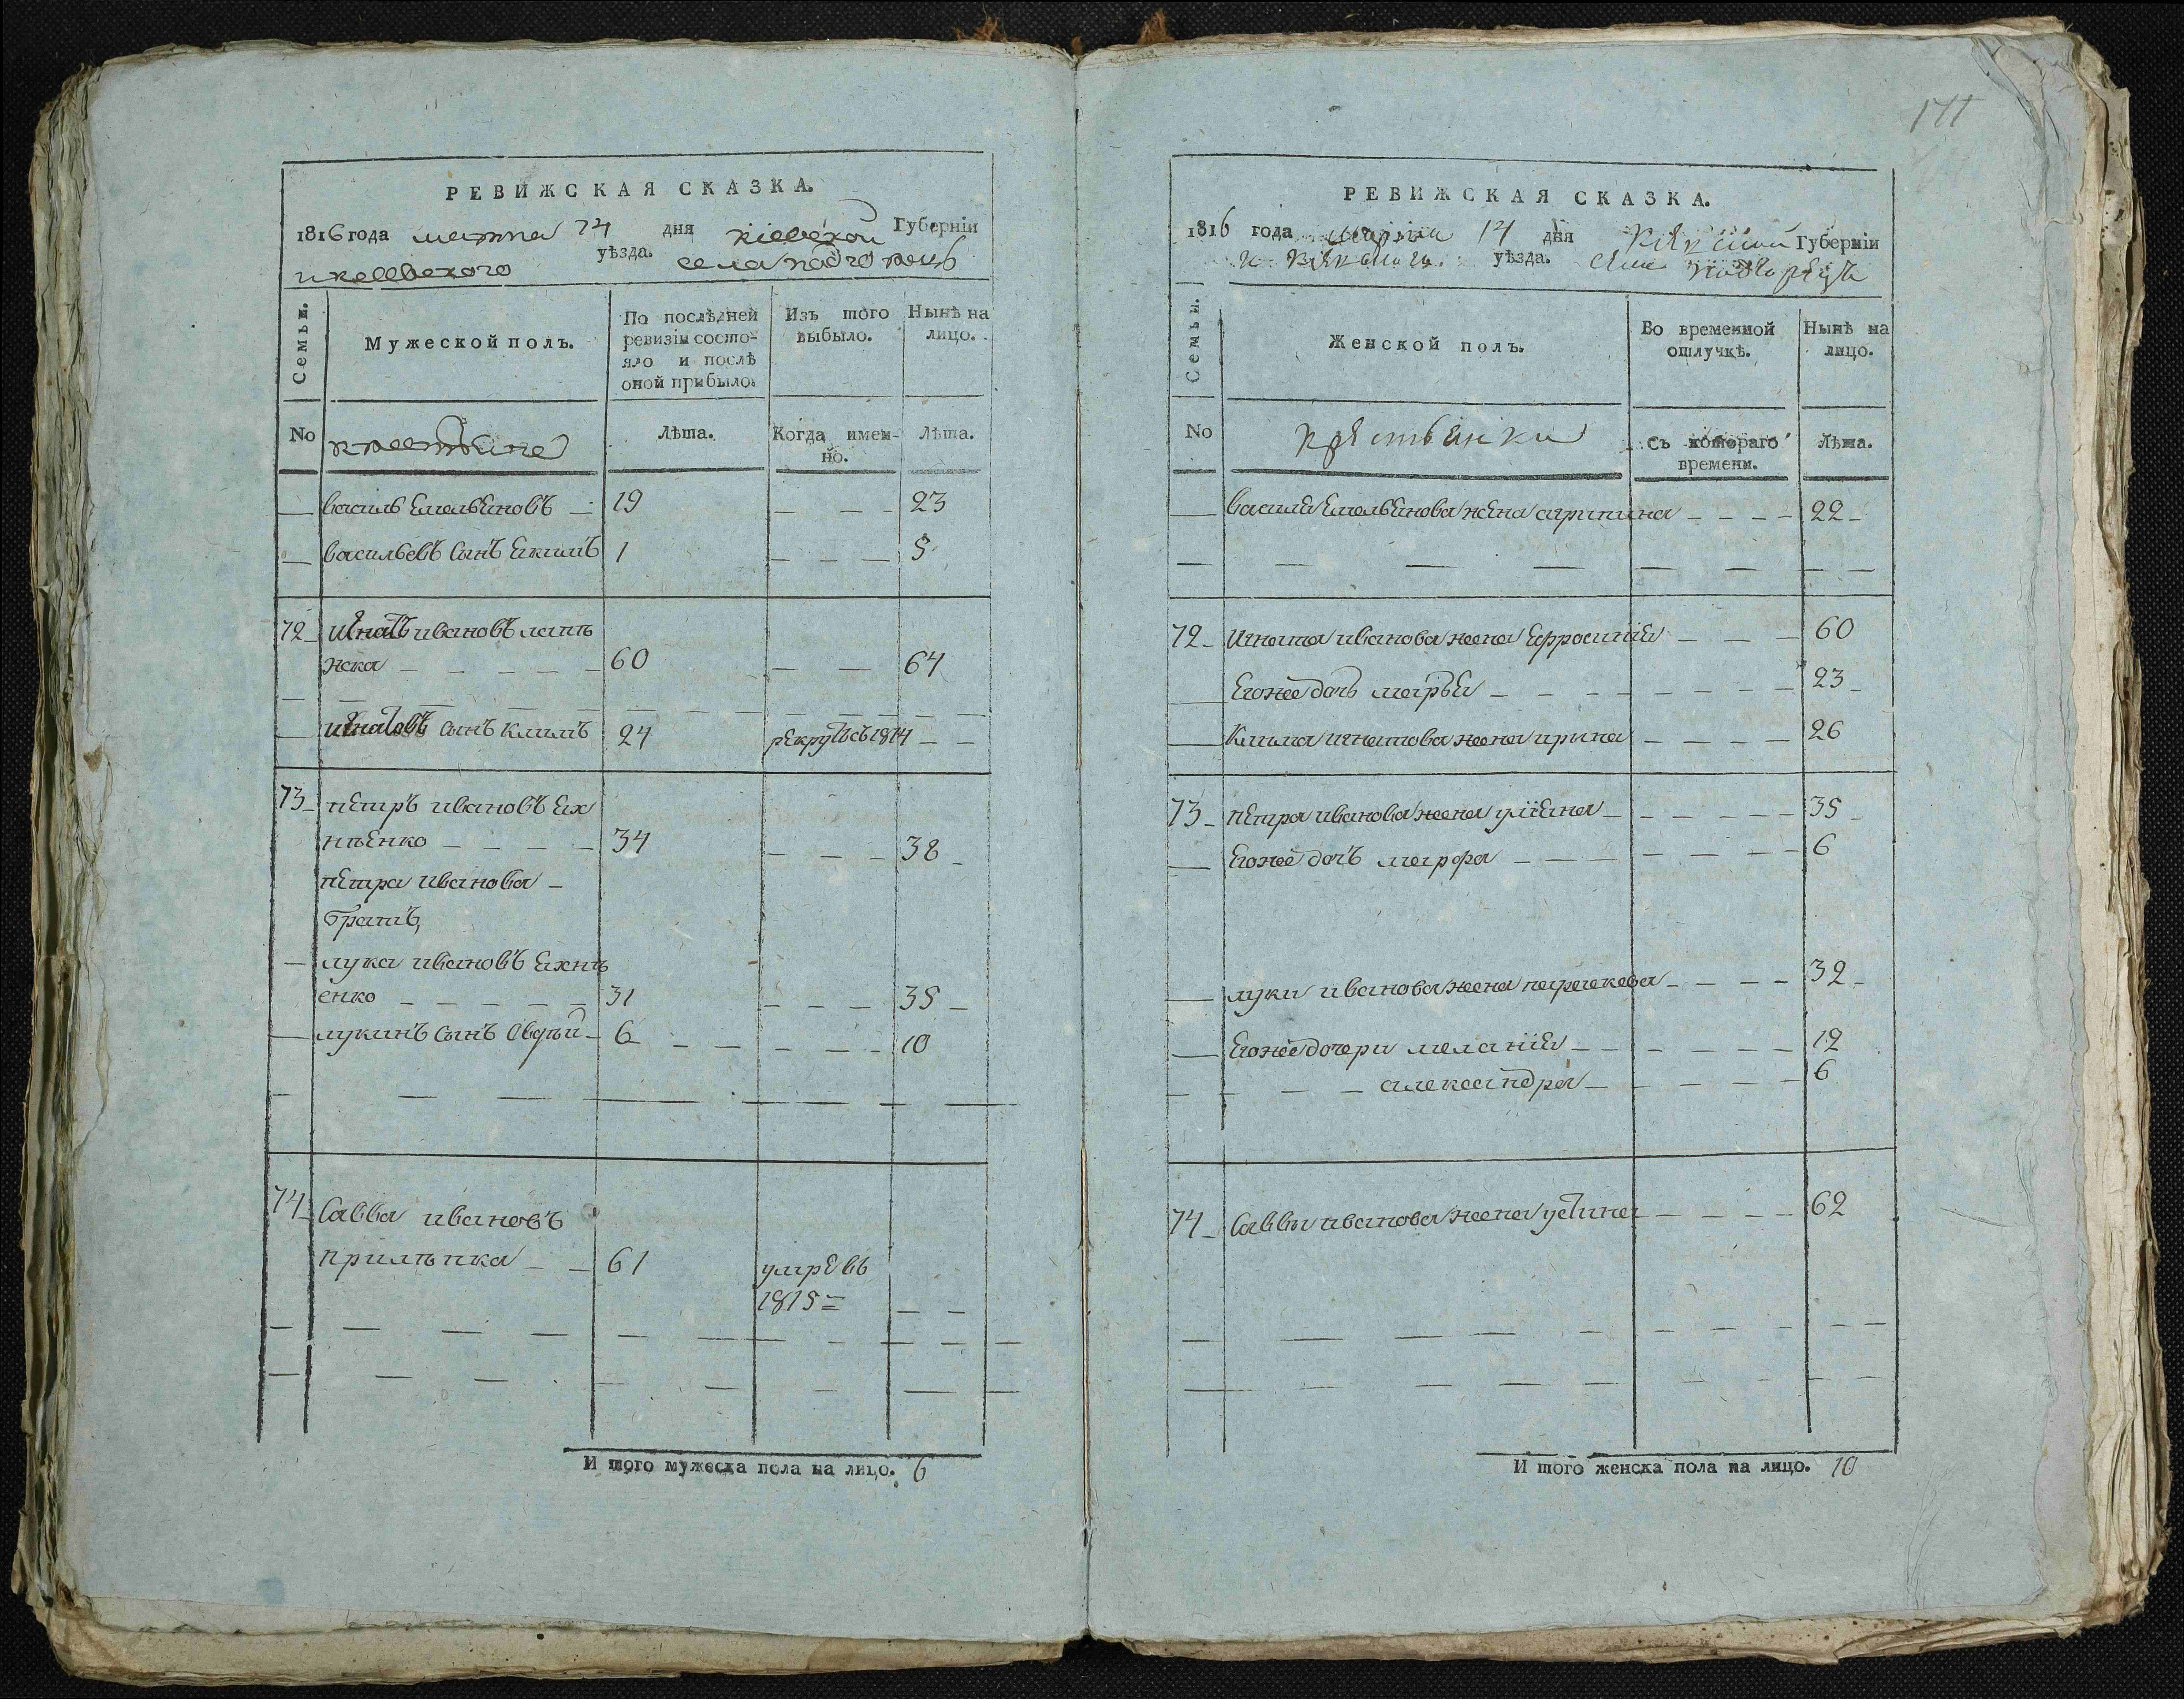 РЕВИЖСКАЯ СКАЗКА.
1816 года марта 14 дня кіевской Губерніи
и кіевского уѣзда. села подгорецъ
Семьи. Мужеской полъ. По послѣдней ревизіи состояло и послѣ оной прибыло. Изъ того выбыло. Нынѣ на лицо.
No крестьяне Лѣта. Когда именно. Лѣта.
василь Емельяновъ 19 23
васильевъ сынъ Якимъ 1 5
72 Игнатъ ивановъ
60 64
Игнатовъ сынъ Климъ 24 рекрутъ съ 1814
73 пЕтръ ивановъ Ях
нѣЕнко 34 38
пЕтра иванова
братъ,
лука ивановъ Яхнѣ
енко 31 35
лукинъ сынъ Овдѣй 6 10
74 Савва ивановъ
прилѣпка 61 умре въ
1815
И того мужеска пола на лицо. 6
171
РЕВИЖСКАЯ СКАЗКА.
1816 года марта 14 дня Кіевской Губерніи
и Кіевского уѣзда. села подгорецъ
Семьи. Женской полъ. Во временной отлучкѣ. Нынѣ на лицо.
No крестьянки Съ котораго времени. Лѣта.
василя Емельянова жена агрипина 22
72 Игната иванова жена Ефросинія 60
Егоже дочь марья 23
Клима игнатова жена ирина 26
73 пЕтра иванова жена улияна 35
Егоже дочь марфа 6
луки иванова жена парасковa 32
Егоже дочери меланія 12
александра 6
74 Саввы иванова жена устина 62
И того женска пола на лицо. 10